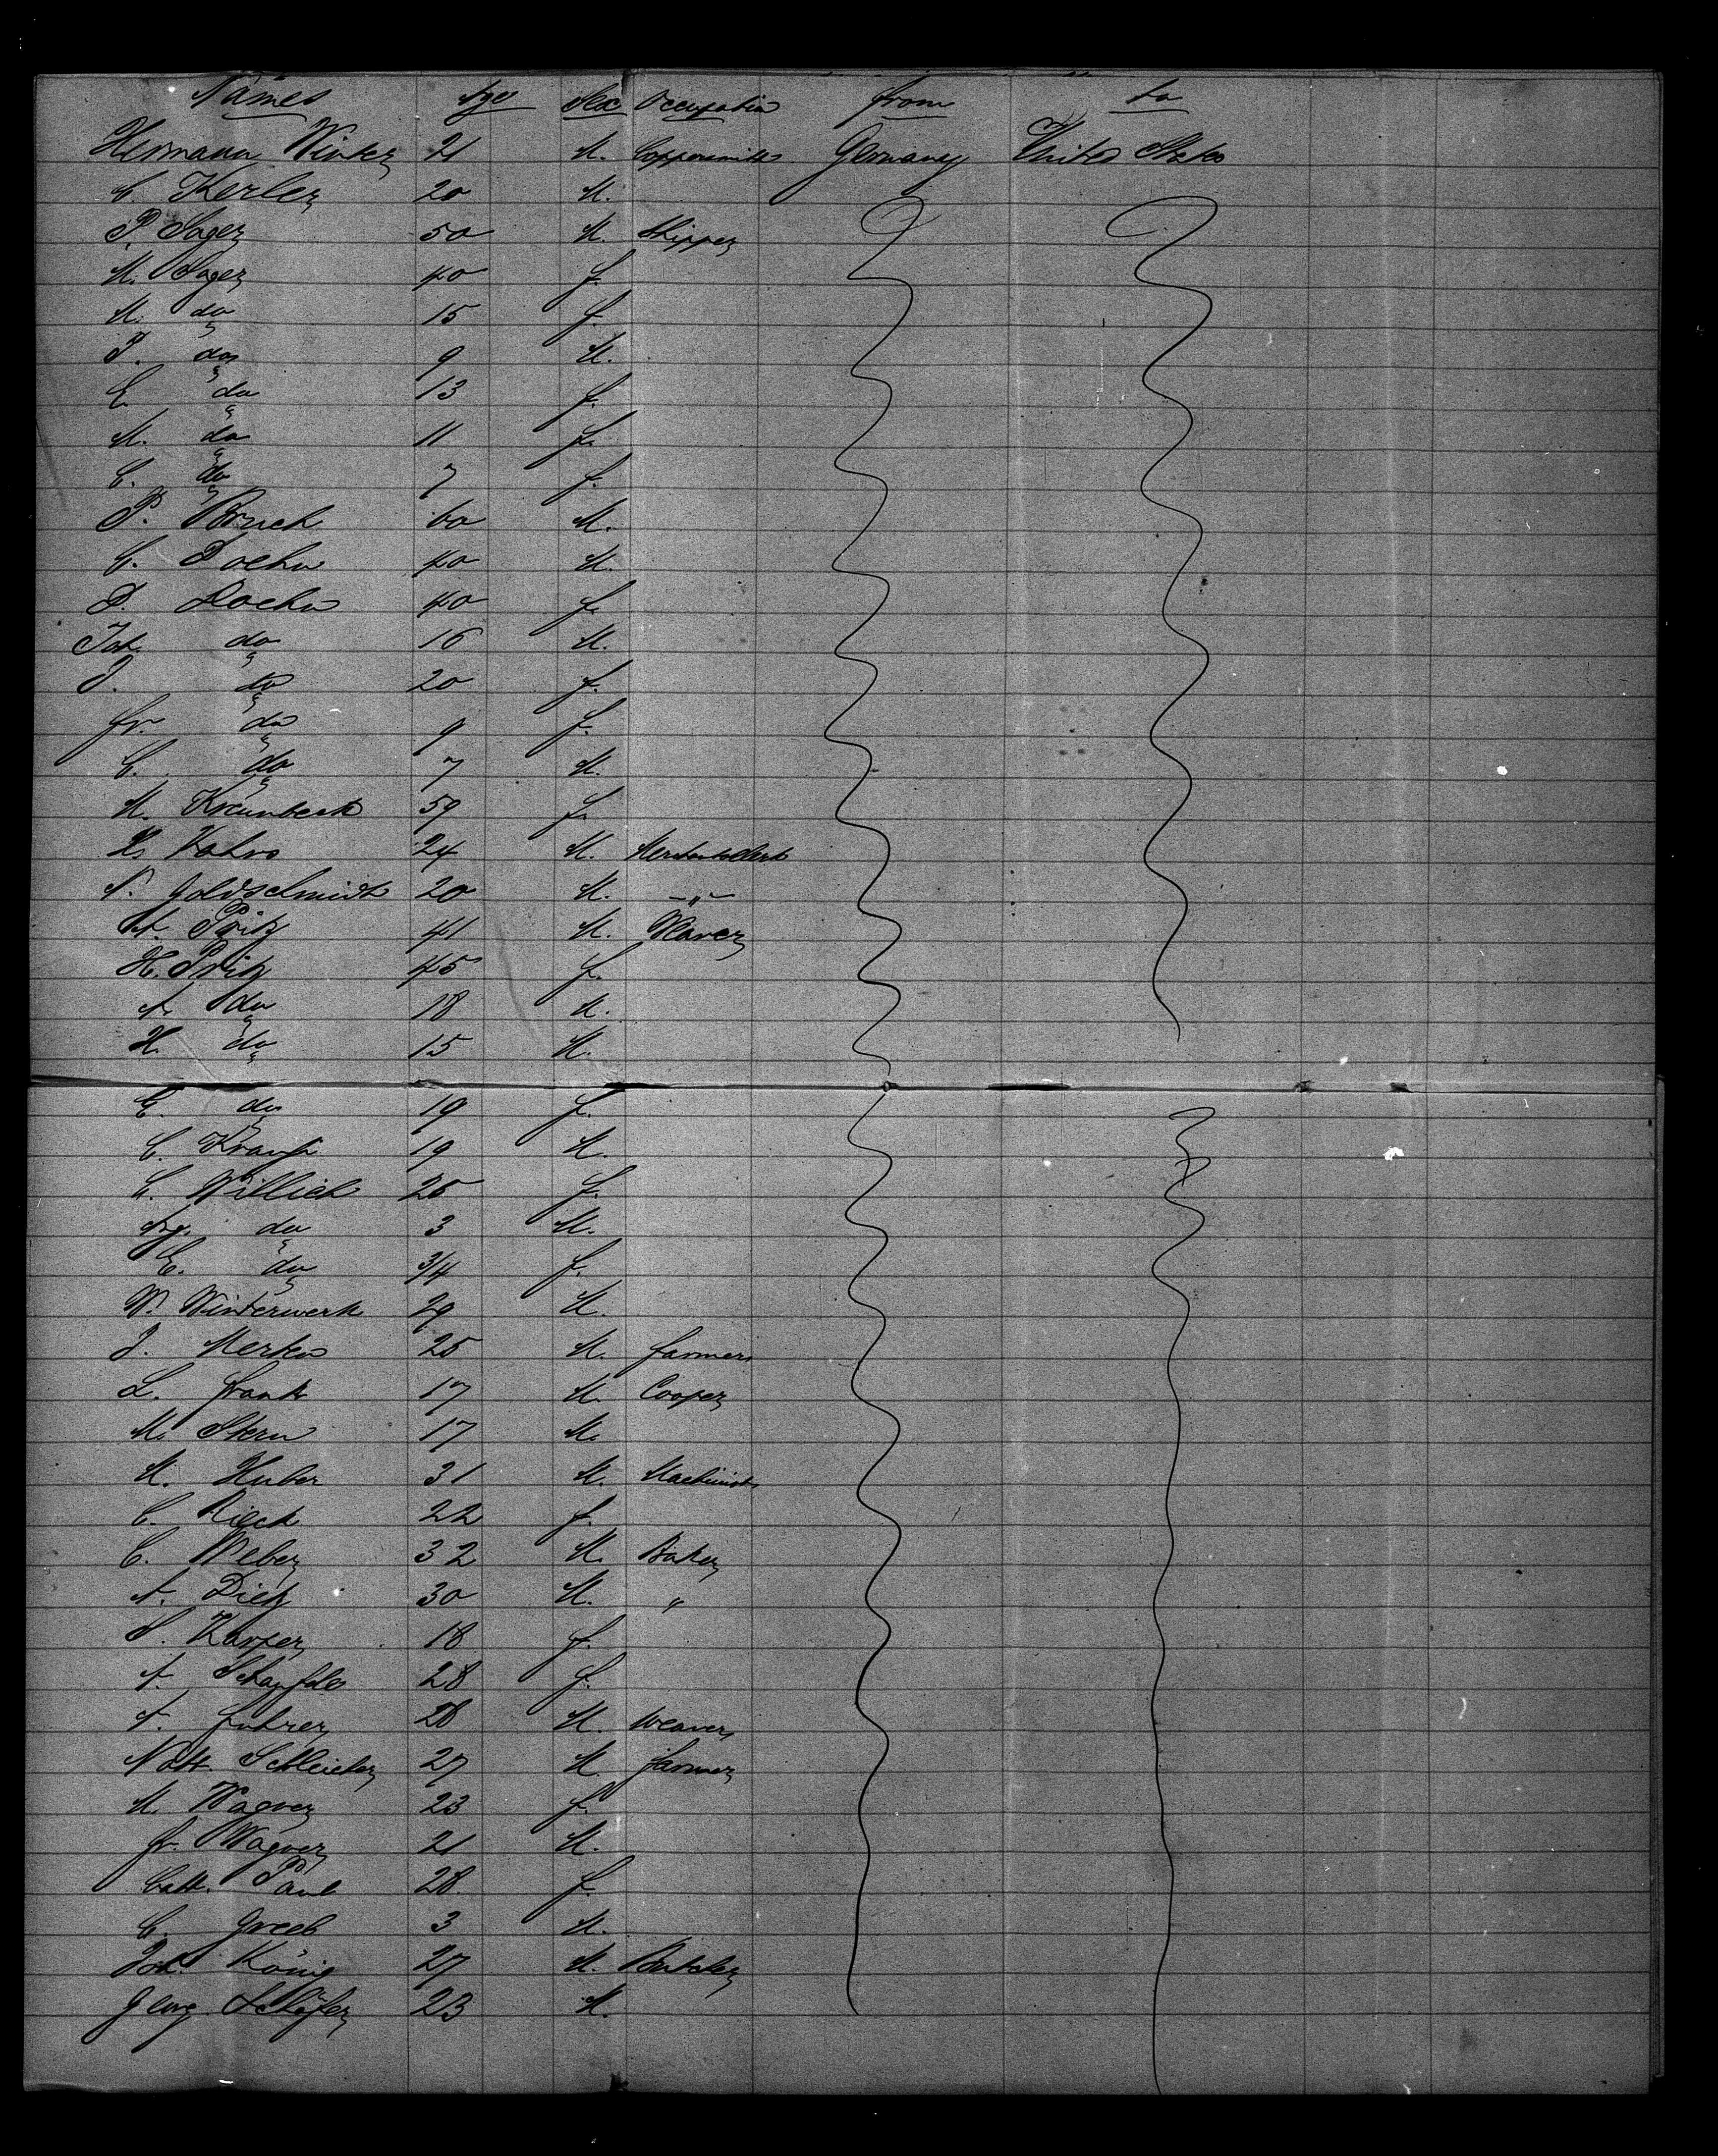 Names Age Sex Occupation from to
Hermann Winter 21 M. Coppersmith Germany United States
C. Kerler 20 M.
P. Sager 50 M. Skipper
M. Sager 40 f.
M. do 15 f.
P. do 9 M.
E. do 13 f.
M. do 11 f.
C. do 7 f.
P. Bruch 60 M.
C. Doehn 40 M.
D. Doehn 40 f.
Joh. do 16 M.
J. do 20 f.
fr. do 9 f.
C. do 7 M.
M. Kreunbeck 59 f.
H. Kahrs 24 M.
S. Goldschmidt 20 M. -"-
A. Pritz 41 M. Weaver
H. Pritz 45 f.
A. do 18 M.
H. do 15 M.
E. do 19 f.
C. 19 M.
E. Willich 25 f.
Aug. do 3 M.
E. do 3/4 f.
W. Winterwerk 29 M.
J. Merkw 25 M. farmer
L. frank 17 M. Cooper
M. Stern 17 M.
M. Huber 31 M. Machinist
C. Rieck 22 f.
C. Weber 32 M. Baker
A. Dietz 30 M. "
S. Karper 18 f.
A. 28 f.
A. fuhrer 28 M. weaver
Nath. Schleicher 27 M. farmer
M. Wagner 23 f.
fr. Wagner 21 M.
Cath. Paul 28 f.
C. Greeb 3 M.
Joh. König 27 M. Butcher
Georg Schäfer 23 M.